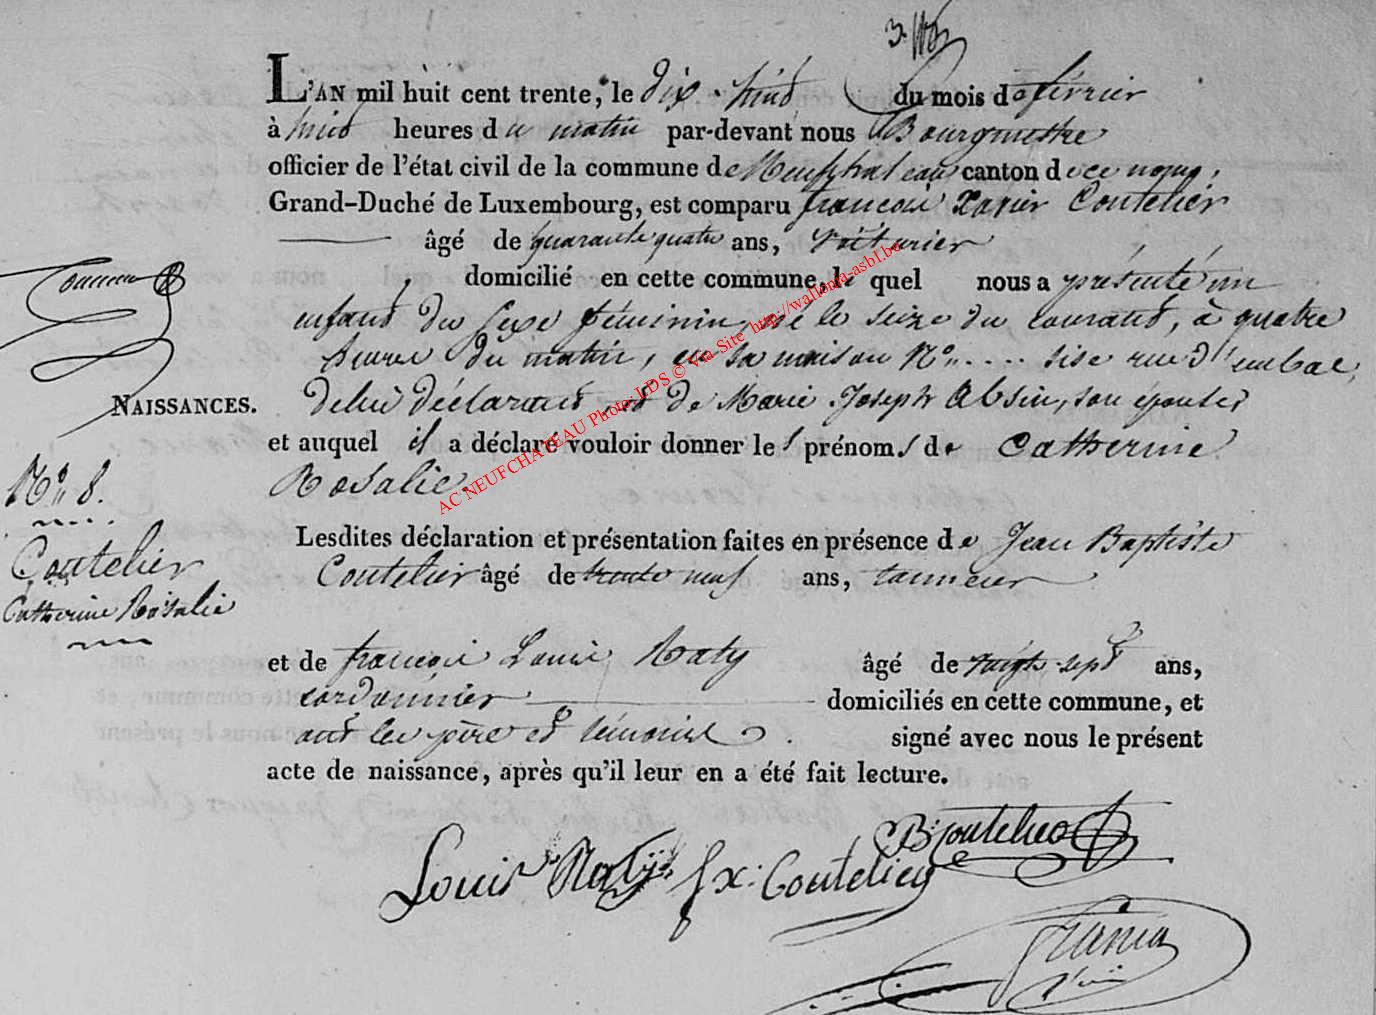 L'AN mil huit cent trente, le dix-huit du mois de février
à huit heures du matin par-devant nous Bourgmestre
officier de l'état civil de la commune de Neufchateau canton de ce nom,
Grand-Duché de Luxembourg, est comparu françois Xavier Coutelier
âgé de quarante quatre ans, voiturier
domicilié en cette commune, le quel nous a présenté un
enfant du sexe féminin, né le seize du courant, à quatre
heures du matin, en sa maison N° .... sise rue d'
de lui déclarant, et de Marie Joseph Absin, son épouse
et auquel il a déclaré vouloir donner les prénoms de Catherine
Rosalie.
NAISSANCES.
N° 8.
Coutelier
Catherine Rosalie
Lesdites déclaration et présentation faites en présence de Jean Baptiste
Coutelier âgé de trente neuf ans, tanneur
et de françois Louis Raty âgé de vingt-sept ans,
cordonnier domiciliés en cette commune, et
ont les père et témoins signé avec nous le présent
acte de naissance, après qu'il leur en a été fait lecture.
Louis Raty fx: Coutelier
B Coutelier
AC NEUFCHATEAU Photo: LDS © Via Site http://wallonia-asbl.be